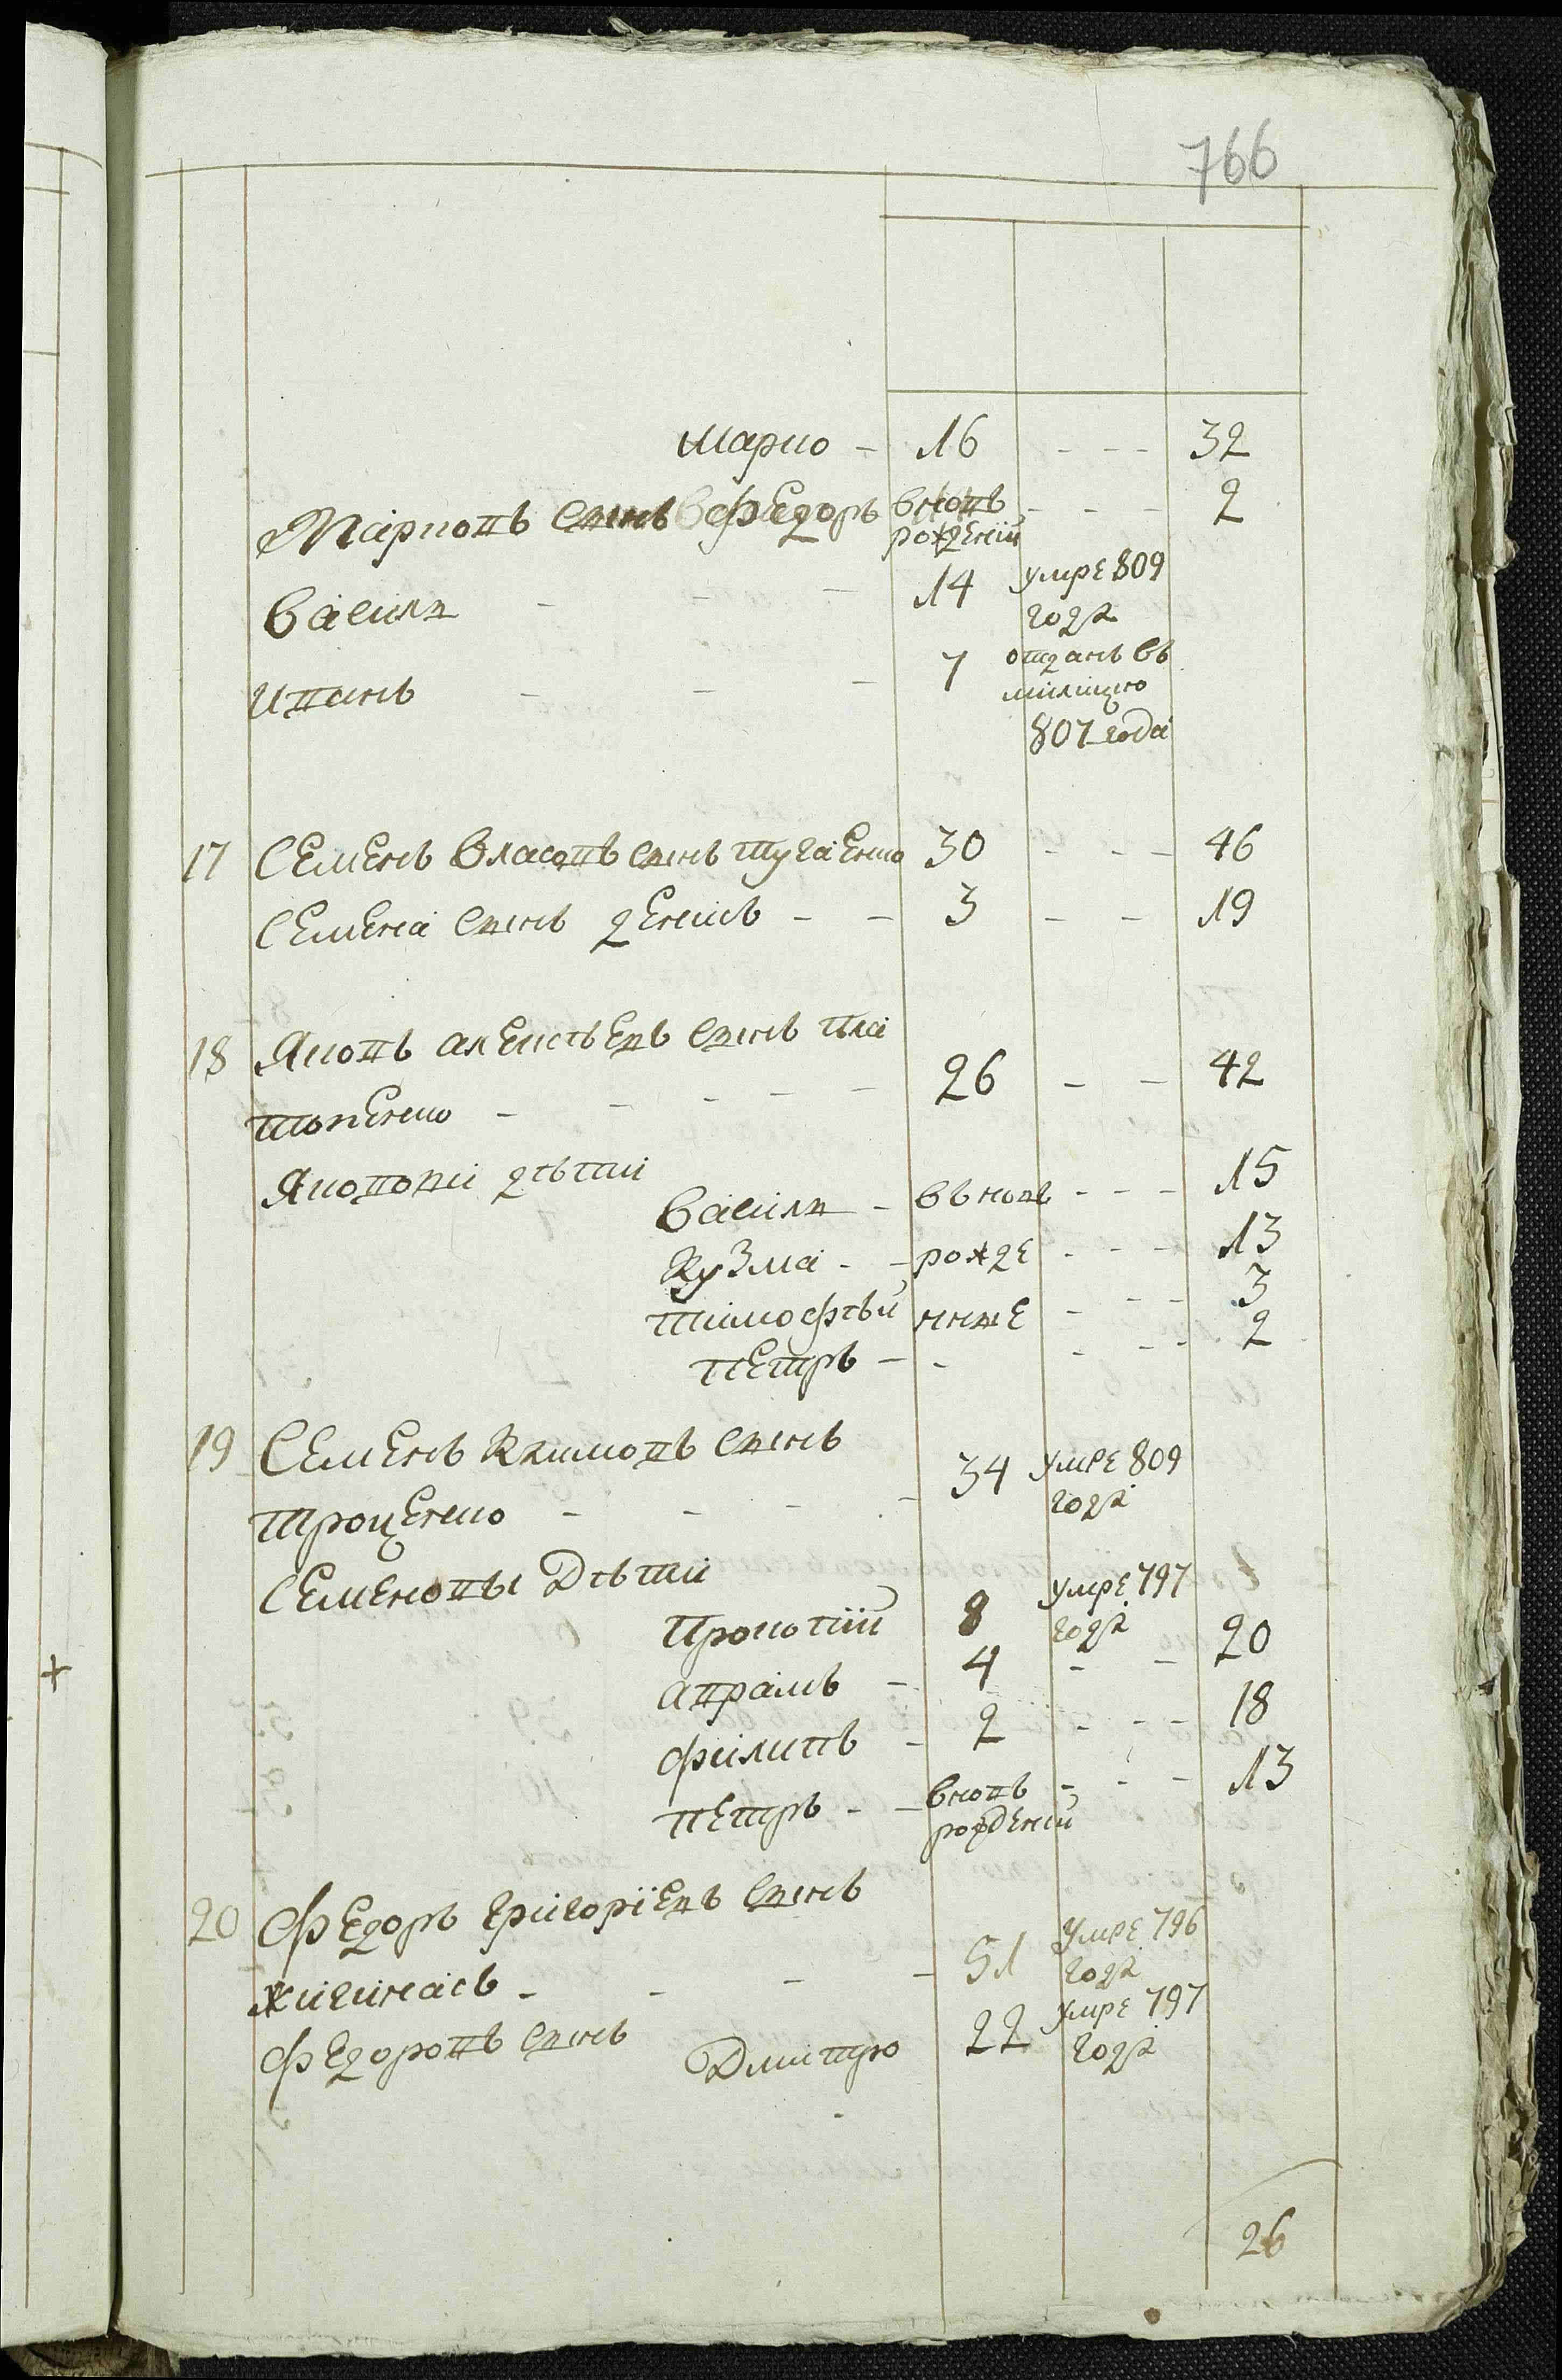 766
Марко - 16 - - - 32
Марковъ сынъ Федоръ вновь - - - 2
рожденій
Василь - - - 14 умре 809
года
Иванъ - - - 7 отданъ въ
милицию
807 года
17 Семенъ Власовъ сынъ Тугаенко 30 - - - 46
Семена сынъ Денисъ - - 3 - - 19
18 Яковъ Алексѣевъ сынъ Пла
токенко - - - - - 26 - - 42
Яковови дѣти
Василь - въновь - - - 15
Кузма - - рожде - - - 13
Тимофѣй нные - - - 3
Петръ - - - - - 2
19 Семенъ Климовъ сынъ
Троценко - - - - 34 умре 809
года
Семеновы дѣти
Прокопій 8 умре 797
года
Аврамъ - 4 - - 20
Филипъ - 2 - - - 18
Петръ - - вновь - - - 13
рожденій
20 Федоръ Григоріевъ сынъ
Жигинасъ - - - - 51 умре 796
года
Федоровъ сынъ Дмитро 22 умре 797
года
26